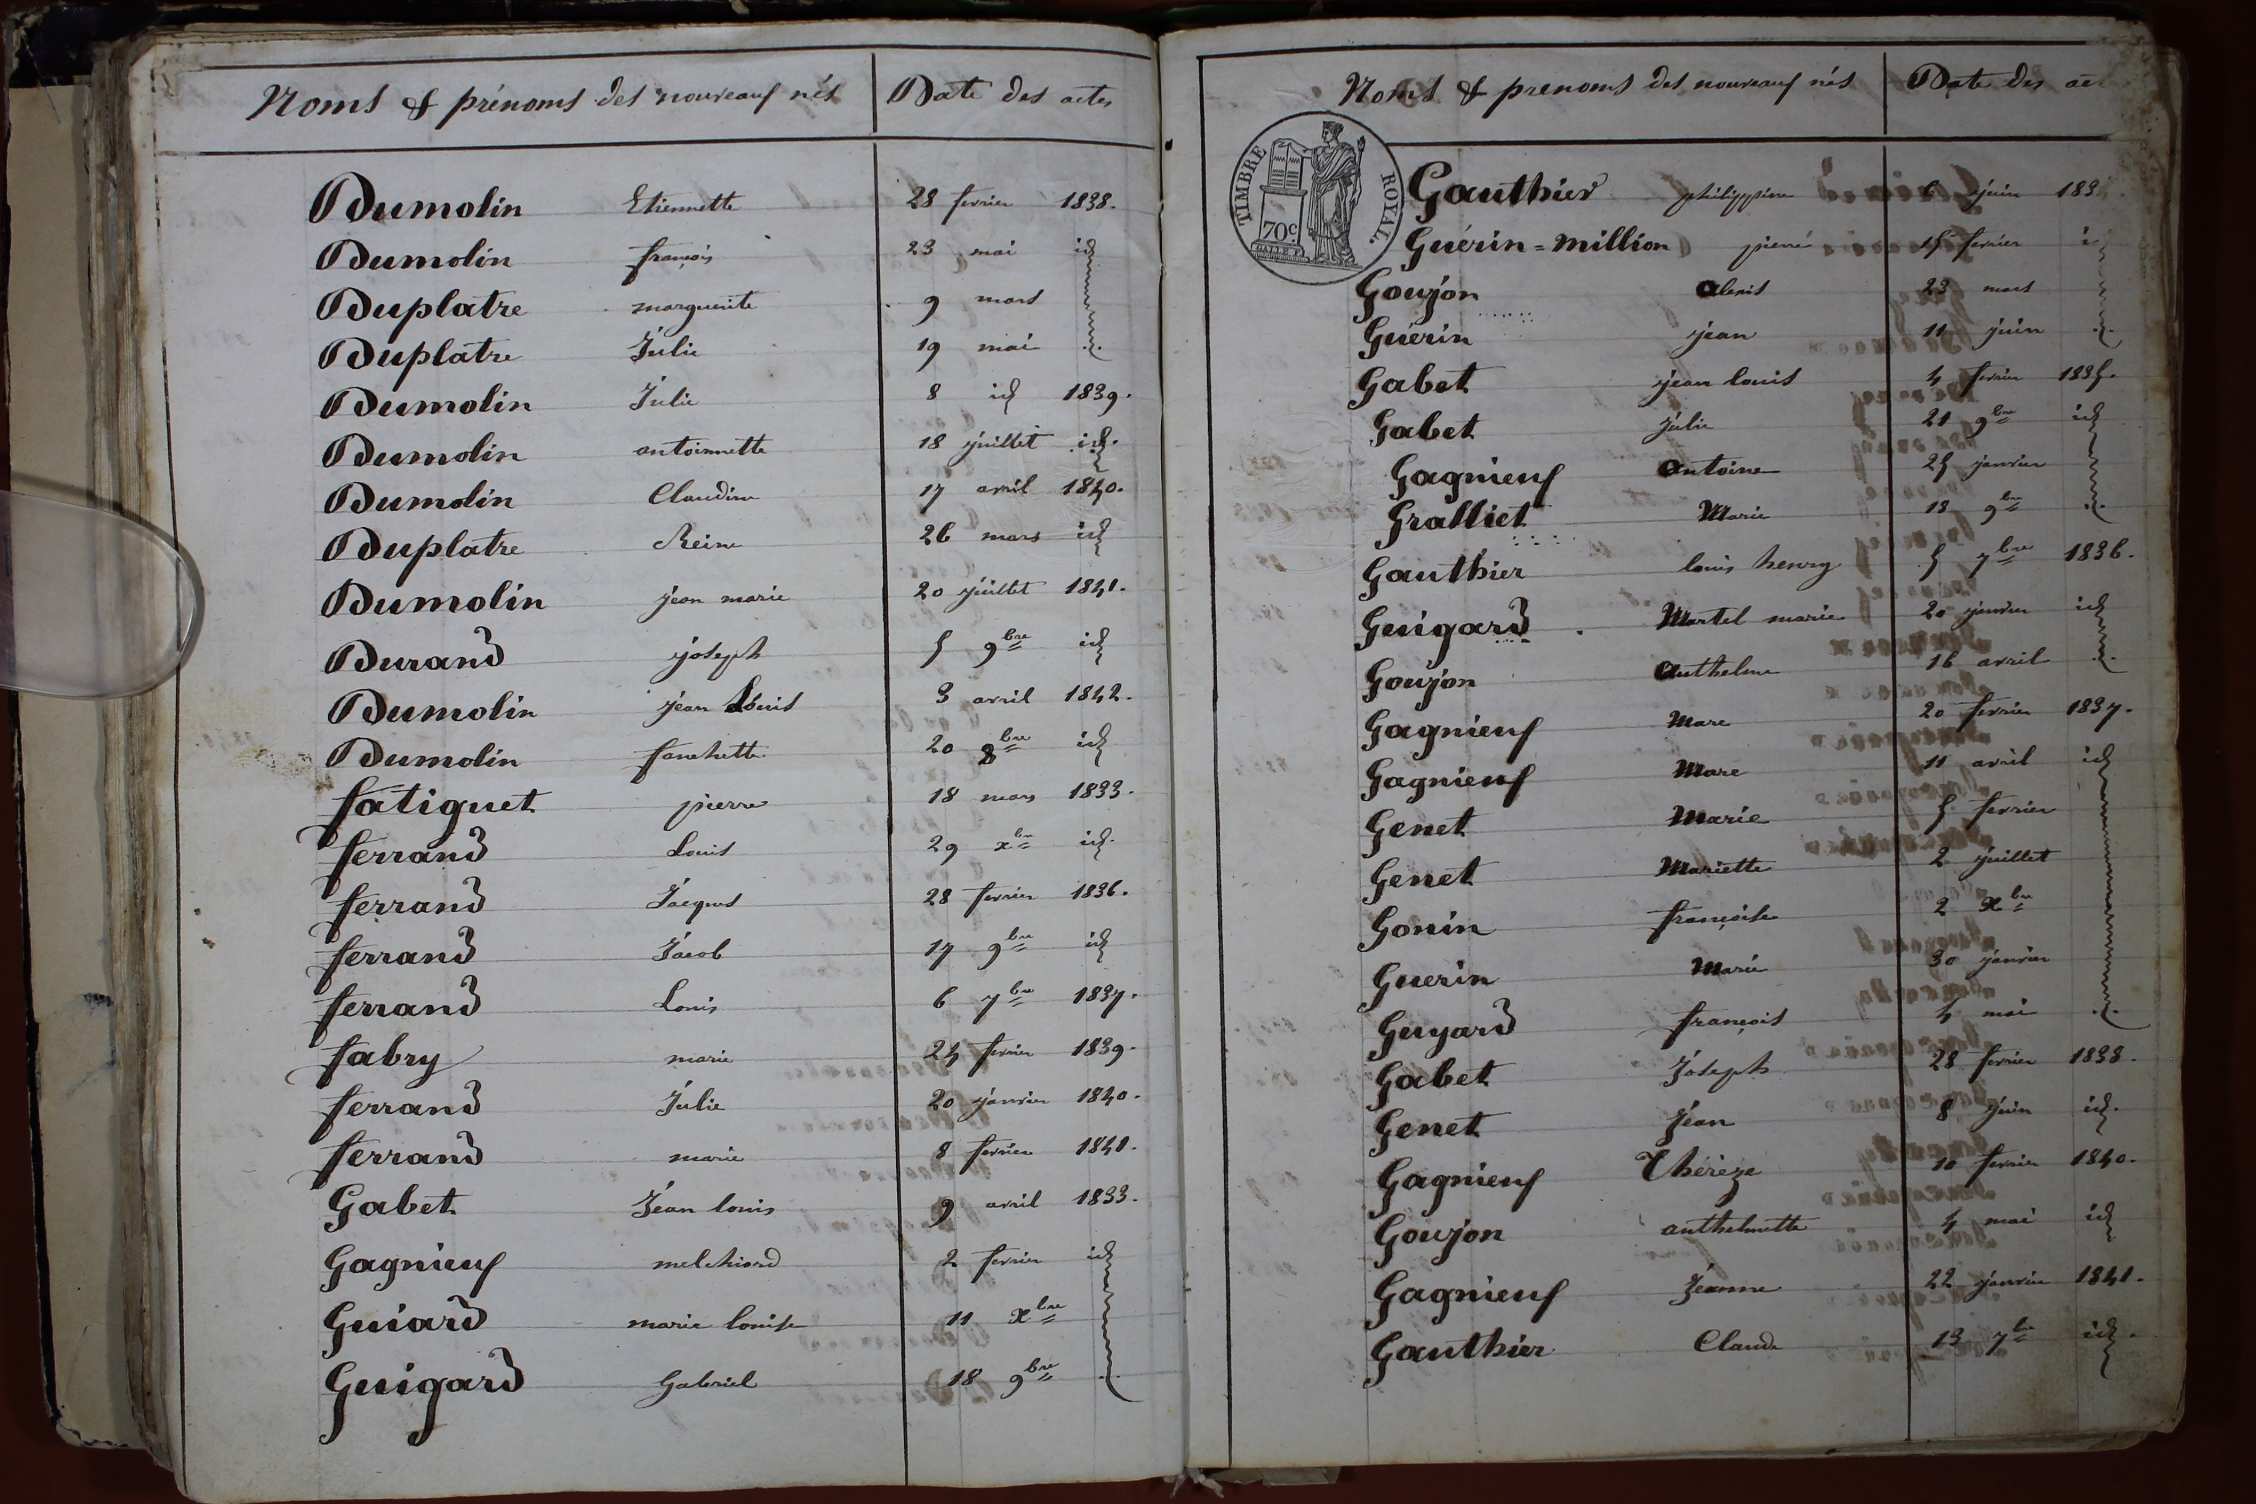 Noms & prénoms des nouveaux nés Date des actes
Dumolin Etiennette 28 fevrier 1838.
Dumolin françois 23 mai id
Duplatre marguerite 9 mars
Duplatre Julie 19 mai
Dumolin Julie 8 id 1839.
Dumolin antoinnette 18 juillet id.
Dumolin Claudine 17 avril 1840.
Duplatre Reine 26 mars id
Dumolin jean marie 20 juillet 1841.
Durand joseph 5 9bre id
Dumolin jean Louis 3 avril 1842.
Dumolin fanchette 20 8bre id
fatiguet pierre 18 mars 1833.
ferrand Louis 29 xbre id.
ferrand Jacques 28 fevrier 1836.
ferrand Jacob 17 9bre id
ferrand Louis 6 7bre 1837.
fabry marie 24 fevrier 1839.
ferrand Julie 20 janvier 1840.
ferrand marie 8 fevrier 1841.
Gabet Jean louis 9 avril 1833.
Gagnieux melchiord 2 fevrier id
Guiard marie louise 11 xbre
Guigard Gabriel 18 9bre
Noms & prenoms des nouveaux nés Date des
TIMBRE ROYAL.
70c.
Gauthier philippine 6 juin
Guérin=million pierre 15 fevrier
Goujon alexis 23 mars
Guérin jean 11 juin
Gabet jean louis 4 fevrier 1835.
Gabet julie 21 9bre id
Gagnieux antoine 25 janvier
Gralliet Marie 18 9bre
Gauthier louis henry 5 7bre 1836.
Guigard Martel marie 20 janvier id
Goujon anthelme 16 avril
Gagnieux Marc 20 fevrier 1837.
Gagnieux Marc 11 avril id
Genet Marie 5 fevrier
Genet Mariette 2 juillet
Gonin françoise 2 xbre
Guerin Marie 30 janvier
Guyard françois 4 mai
Gabet Joseph 28 fevrier 1838.
Genet Jean 8 juin id.
Gagnieux Thérèze 10 fevrier 1840.
Goujon anthelmette 4 mai id
Gagnieux Jeanne 22 janvier 1841.
Gauthier Claude 13 7bre id.